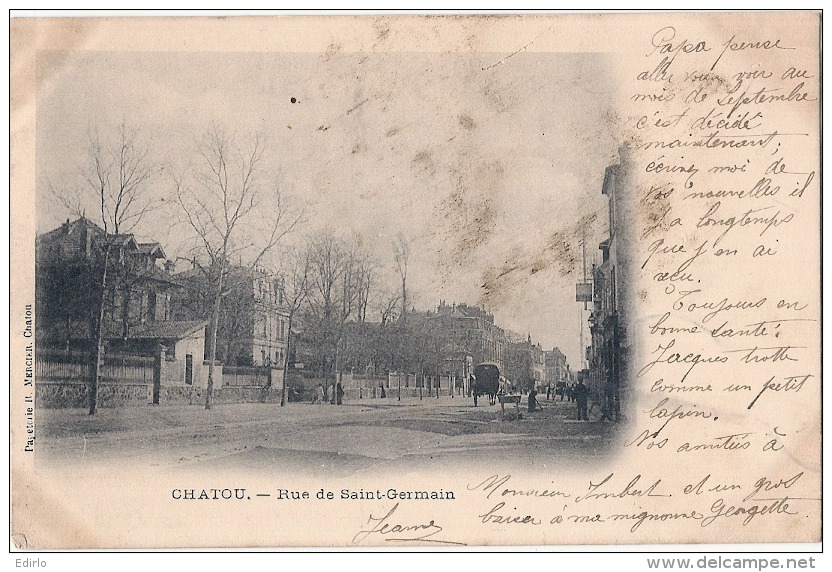 Papa pense
aller vous voir au
mois de Septembre
c'est décidé
maintenant;
écrivez moi de
vos nouvelles il
y a longtemps
que j'en ai
reçu.
Toujours en
bonne santé.
Jacques trotte
comme un petit
lapin.
Nos amitiés à
Monsieur Imbert et un gros
baiser à ma mignonne Georgette.
Jeanne
CHATOU. — Rue de Saint-Germain
Papeterie R. MERCIER, Chatou
Edirlo
delcampe.net